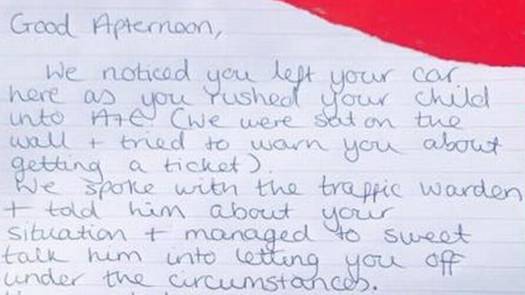 Good Afternoon,
We noticed you left your car
here as you rushed your child
into A+E (We were sat on the
wall + tried to warn you about
getting a ticket).
We spoke with the traffic warden
+ told him about your
situation + managed to sweet
talk him into letting you off
under the circumstances.